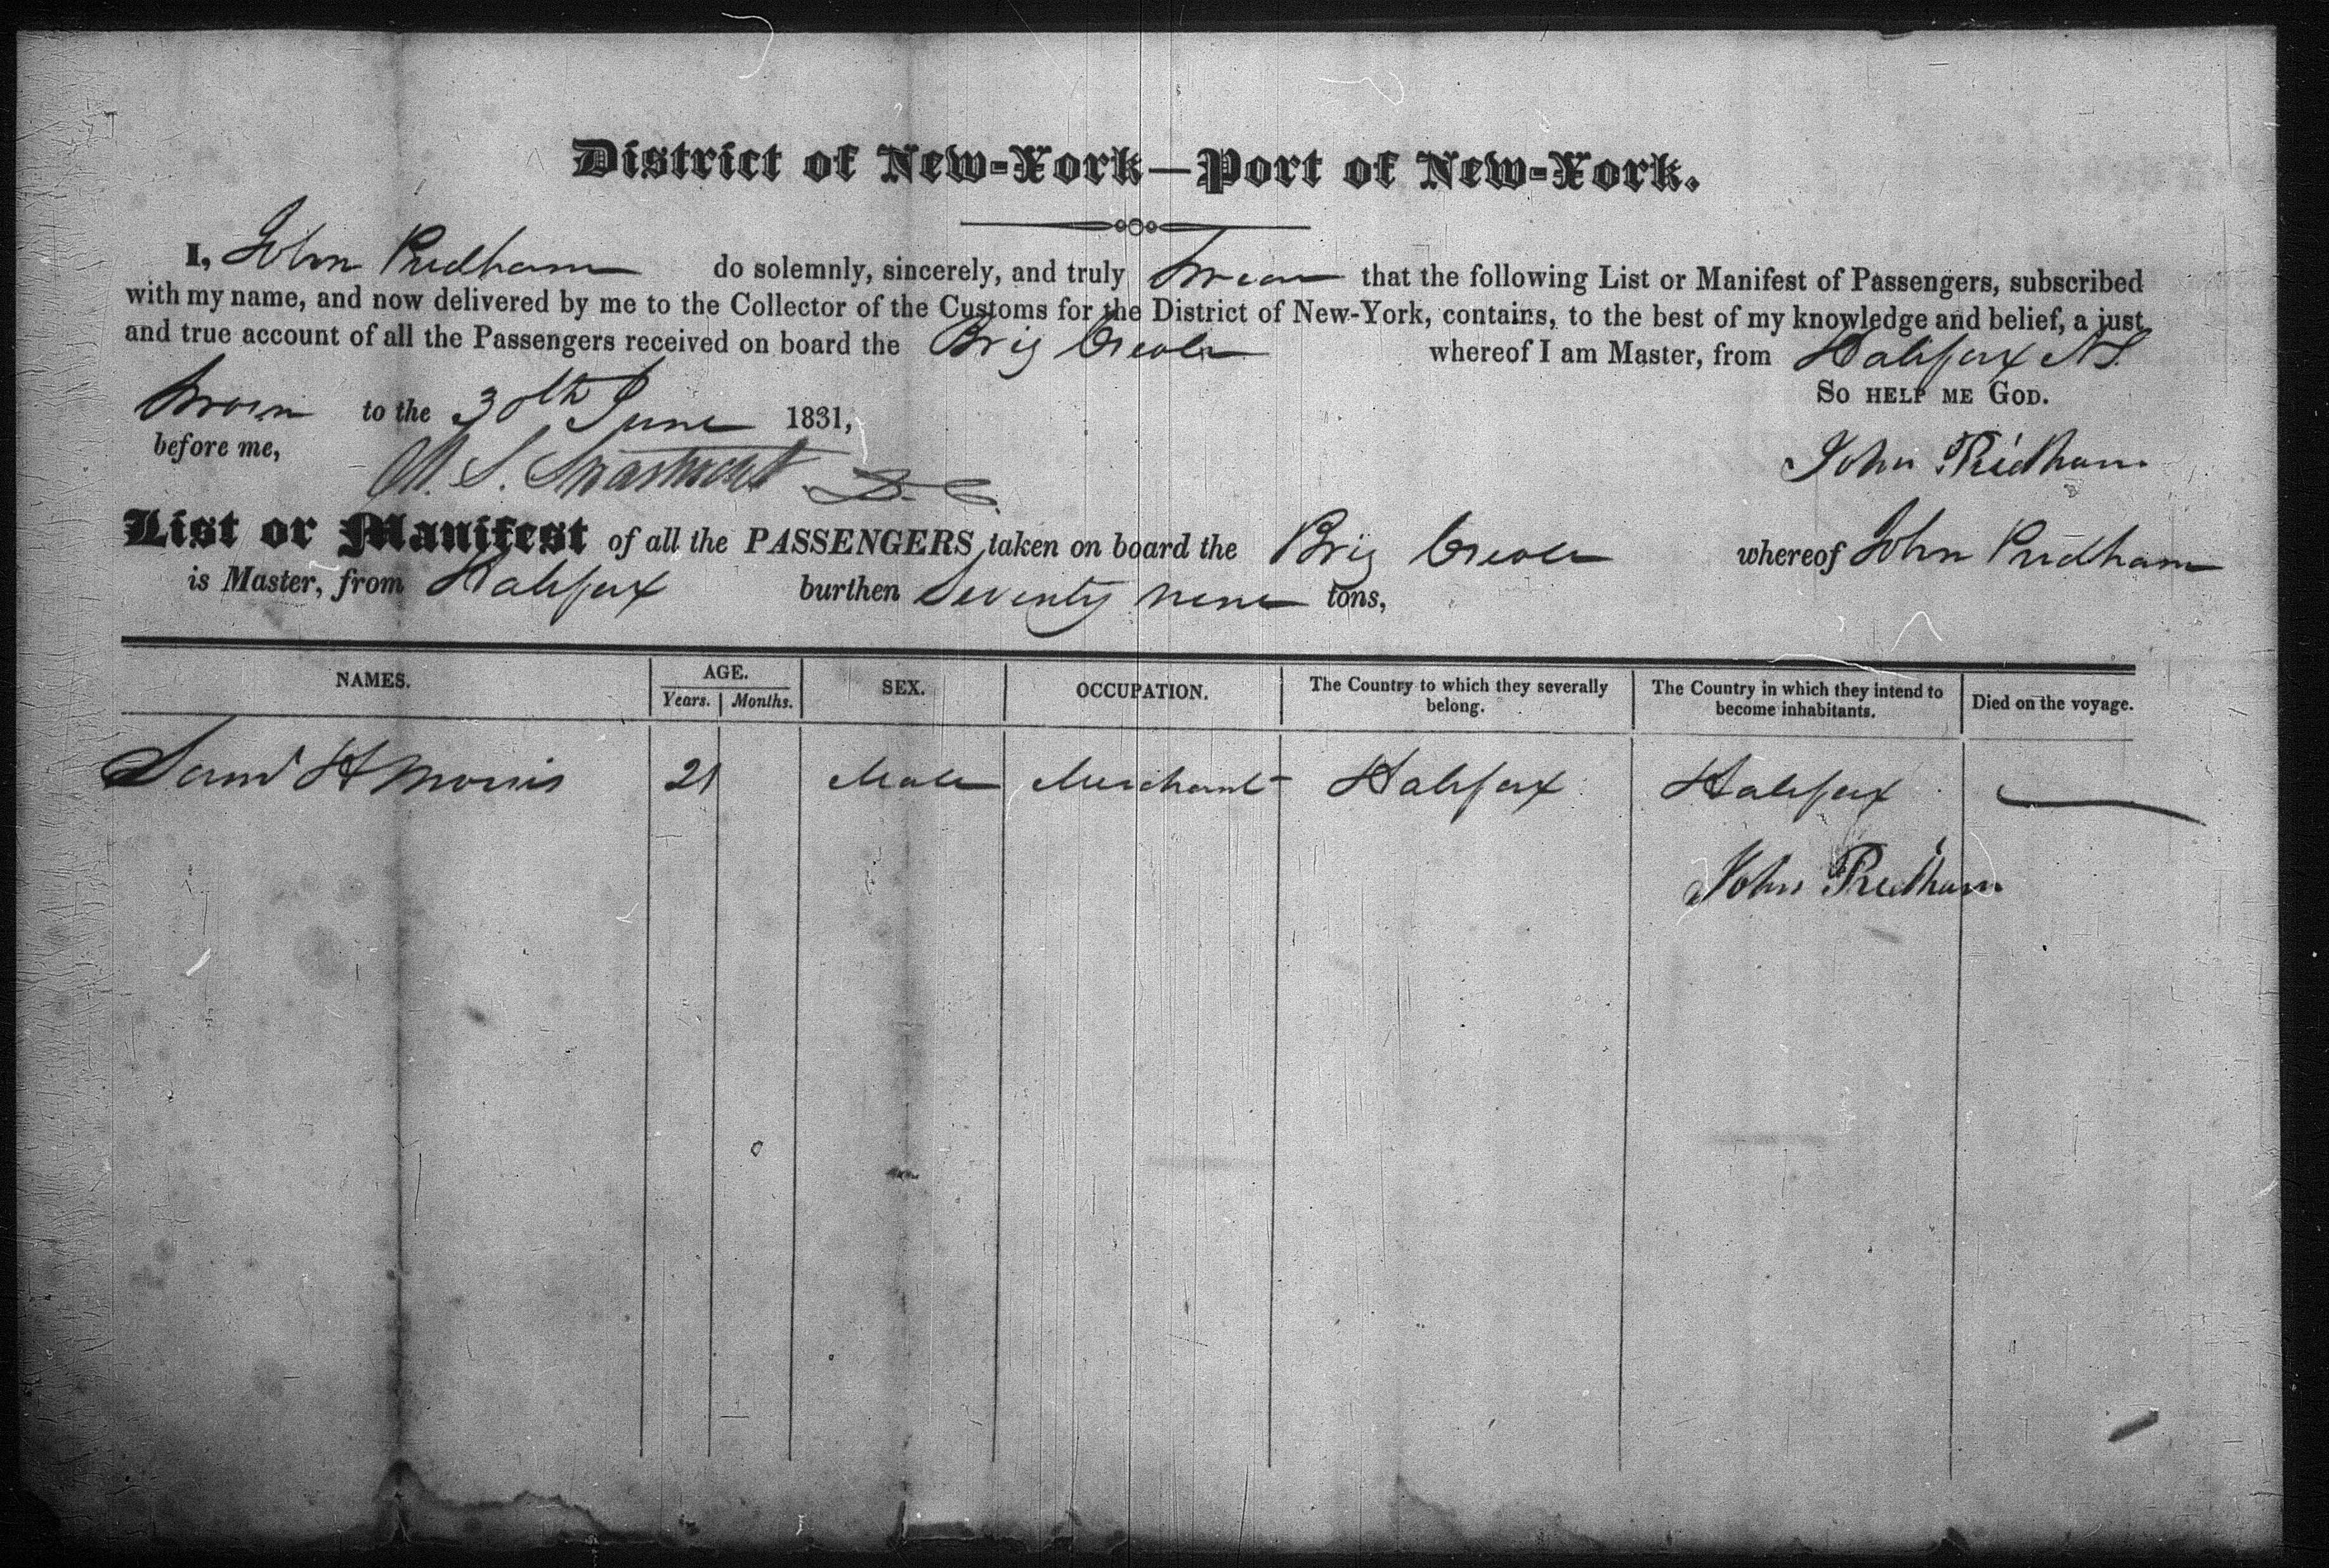 District of New-York—Port of New-York.
I, John Pridham do solemnly, sincerely, and truly swear that the following List or Manifest of Passengers, subscribed
with my name, and now delivered by me to the Collector of the Customs for the District of New-York, contains, to the best of my knowledge and belief, a just
and true account of all the Passengers received on board the Brig Creole whereof I am Master, from Halifax NS.
So HELP ME GOD.
Sworn to the 30th June 1831,
before me,
John Pridham
List or Manifest of all the PASSENGERS taken on board the Brig Creole whereof John Pridham
is Master, from Halifax burthen Seventy nine tons,
NAMES. AGE. Years. Months. SEX. OCCUPATION. The Country to which they severally belong. The Country in which they intend to become inhabitants. Died on the voyage.
Saml H Morris 21 Male Merchant Halifax Halifax
John Pridham